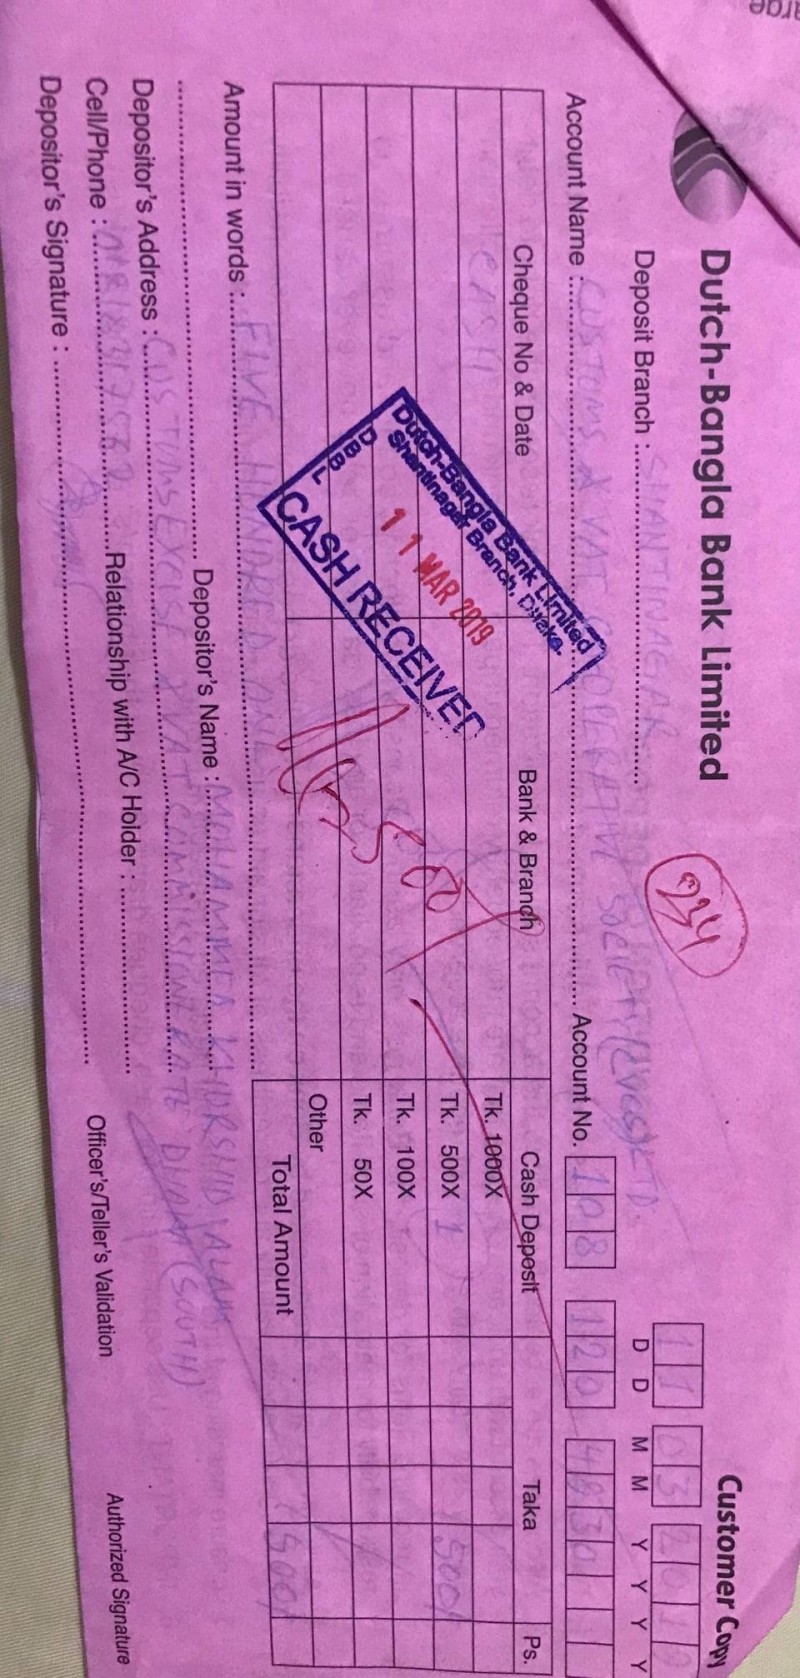 arge
Dutch-Bangla Bank Limited
Customer Copy
Deposit Branch : SHANTINAGAR
234
11 03 2019
D D M M Y Y Y Y
Account Name : CUSTOMS & VAT COOPERATIVE SOCIETY
Account No. 108 120 4830
Cheque No & Date Bank & Branch Cash Deposit Taka Ps.
CASH Tk. 1000X
Tk. 500X 1 500/
Tk. 100X
Tk. 50X
Other
Total Amount 500/
500/
Dutch-Bangla Bank Limited
Shantinagar Branch, Dhaka.
11 MAR 2019
D B B L
CASH RECEIVED
Amount in words : FIVE HUNDRED
Depositor's Name : MOHAMMED KHORSHID ALAM
Depositor's Address : CUSTOMS EXCISE & VAT COMMISSIONERATE DHAKA (SOUTH)
Cell/Phone : Relationship with A/C Holder :
Depositor's Signature :
Officer's/Teller's Validation
Authorized Signature